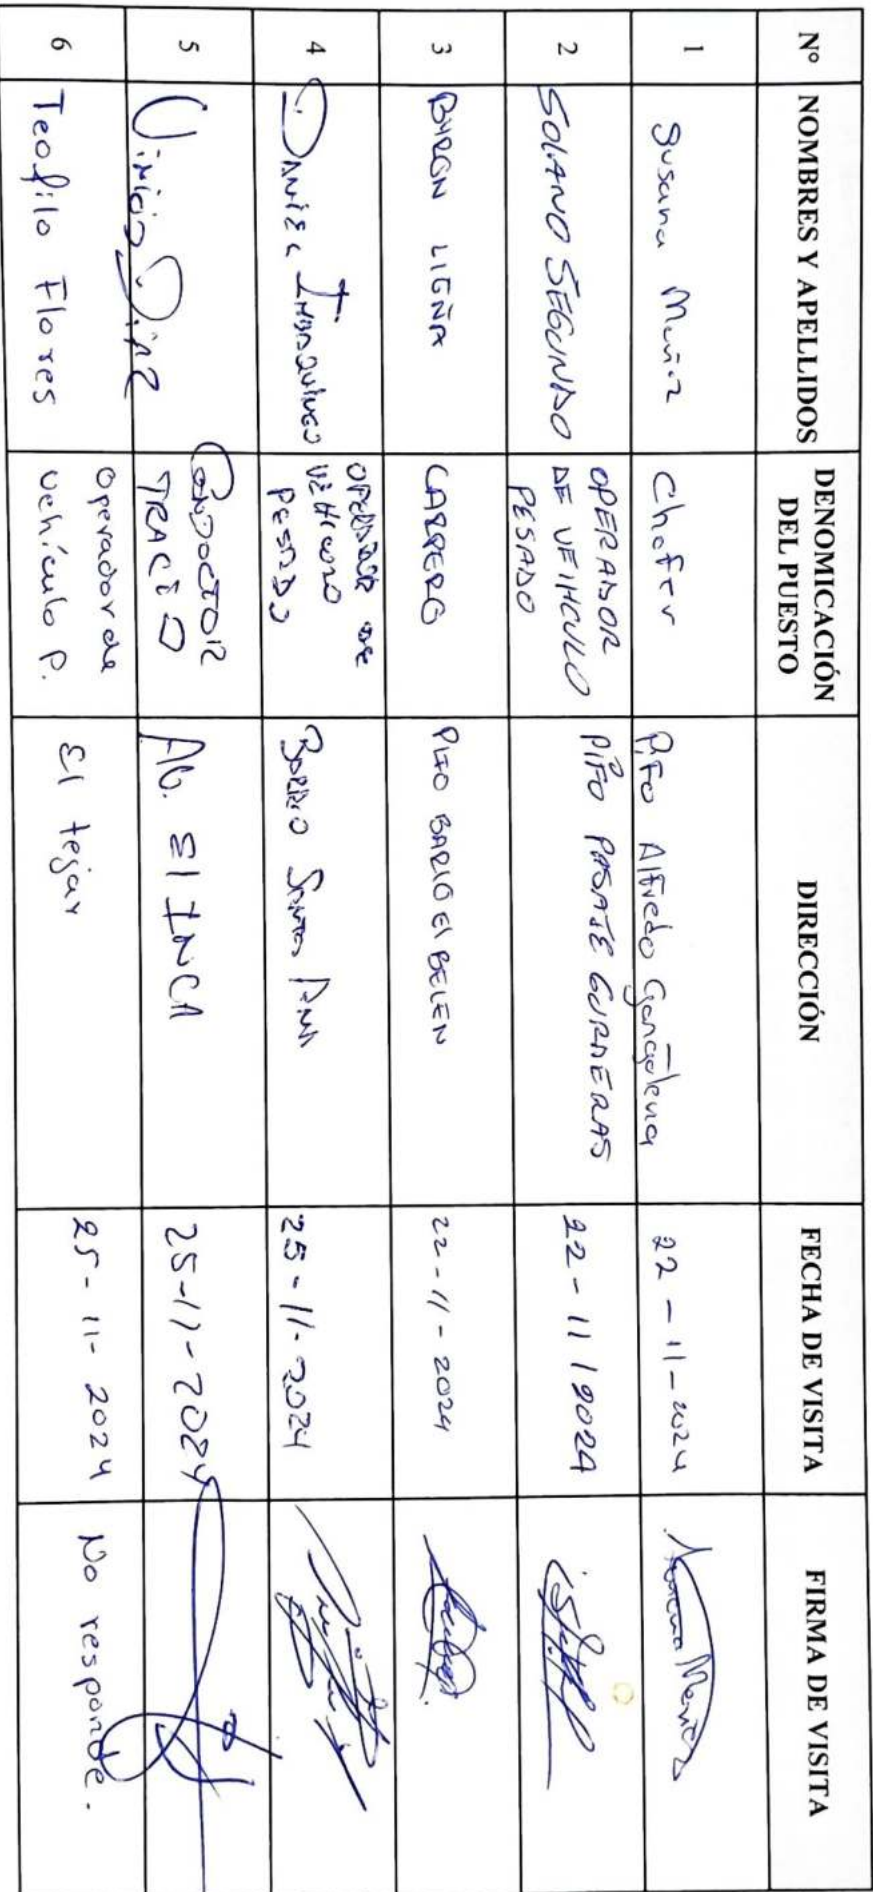 Nº NOMBRES Y APELLIDOS DENOMICACIÓN DEL PUESTO DIRECCIÓN FECHA DE VISITA FIRMA DE VISITA
1 Susana Muñoz Chofer Pifo Alfredo 22-11-2024 Susana Muñoz
2 SOLANO SEGUNDO OPERADOR DE VEIHCULO PESADO PIFO PASAJE GURDERAS 22-11 12024
3 BYRON LIGÑA CARPERO PIFO BARIO El BELEN 22-11-2024
4 DANIEL IMBAQUINGO OPERADOR DE VEHICULO PESADO BARRIO SANTA ANA 25-11-2024
5 Vinicio DiAZ CONDOCTOR TRACTO AV. El INCA 25-11-2024
6 Teofilo Flores Operador de Vehículo P. El tejar 25-11-2024 No responde.